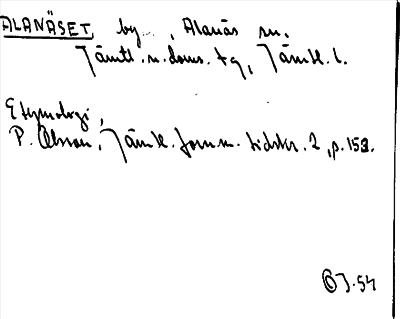 ALANÄSET, by , Alanäs sn,
Jämtl. n. doms. tg, Jämtl. l.
Etymologi,
P. Olsson, Jämtl. fornm. tidskr. 2, p. 152.
J-54